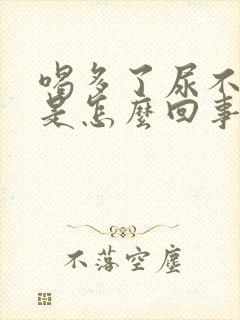 喝多了尿不
是怎麼回事
不落空塵